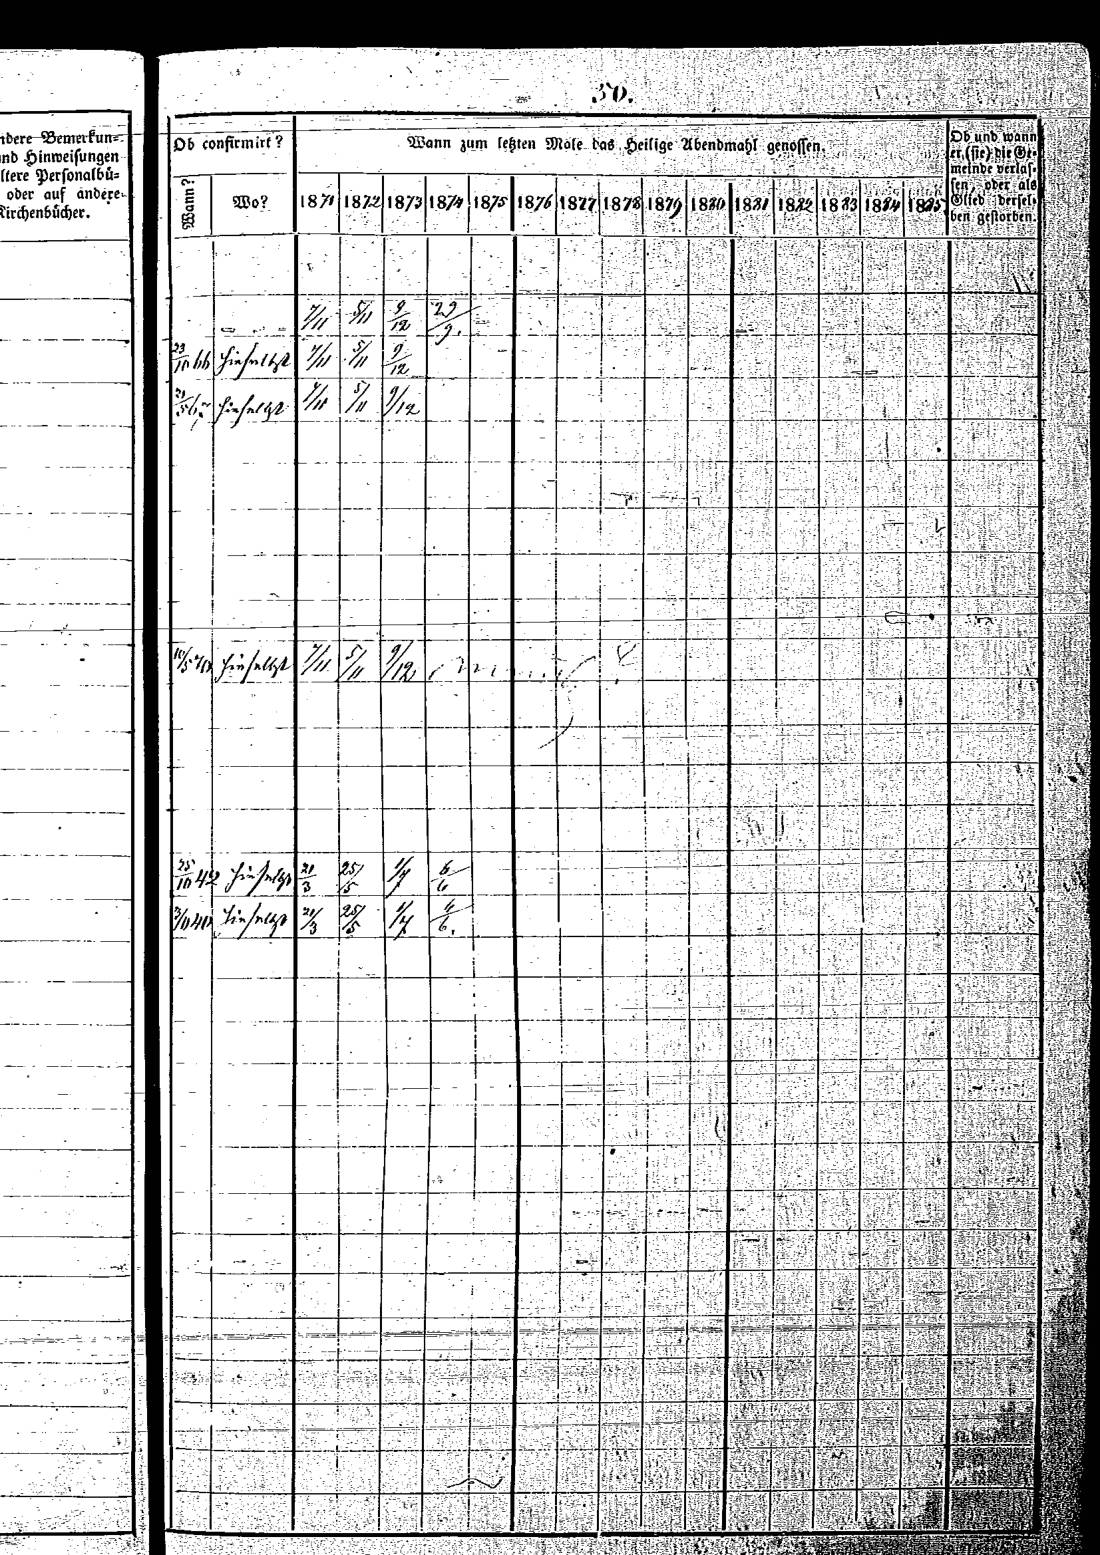 50.
ndere Bemerkun=
nd Hinweisungen
ltere Personalbü=
oder auf andere
Kirchenbücher.
Ob confirmirt?
Wann zum letzten Male das Heilige Abendmahl genossen.
Ob und wann
er (sie) die Ge=
meinde verlas=
sen, oder als
Glied dersel=
ben gestorben.
Wann? Wo? 1871 1872 1873 1874 1875 1876 1877 1878 1879 1880 1881 1882 1883 1884 1885
7/11 5/11 9/12 29/9.
23/10 66 hieselbst 7/11 5/11 9/12
hieselbst 7/11 5/11 9/12
10/5 70 hieselbst 7/11 5/11 9/12
25/10 42 hieselbst 21/3 25/5 1/7 6/6
3/10 40 hieselbst 21/3 25/5 1/7 6.